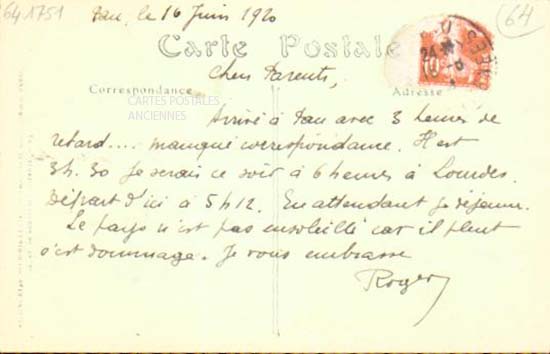 641751
Pau, le 16 Juin 1920
64
Carte Postale
Chers Parents,
Correspondance
Adresse
CARTES POSTALES
ANCIENNES
Arrivé à Pau avec 3 heures de
retard.... manqué correspondance. Il est
3h.30 Je serais ce soir à 6 heures à Lourdes.
Départ d'ici à 5h12. En attendant je déjeune.
Le pays n'est pas ensoleillé car il pleut
c'est dommage. Je vous embrasse
Roger